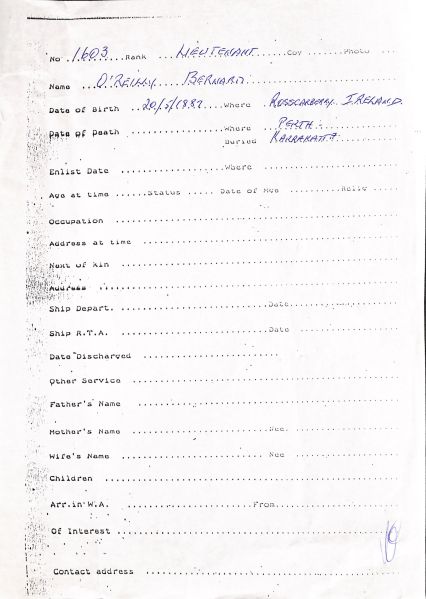 No 1603 Rank LIEUTENANT Coy Photo
Name O'REILLY BERNARD
Date of Birth 20/5/1882 Where ROSSCARBERRY IRELAND.
Date of Death Where PERTH
Buried KARRAKATTA
Enlist Date Where
Age at time Status Date of Age Relig
Occupation
Address at time
Next of kin
Address
Ship Depart. Date
Ship R.T.A. Date
Date Discharged
Other Service
Father's Name
Mother's Name Nee
Wife's Name Nee
Children
Arr.in W.A. From
Of Interest
Contact address